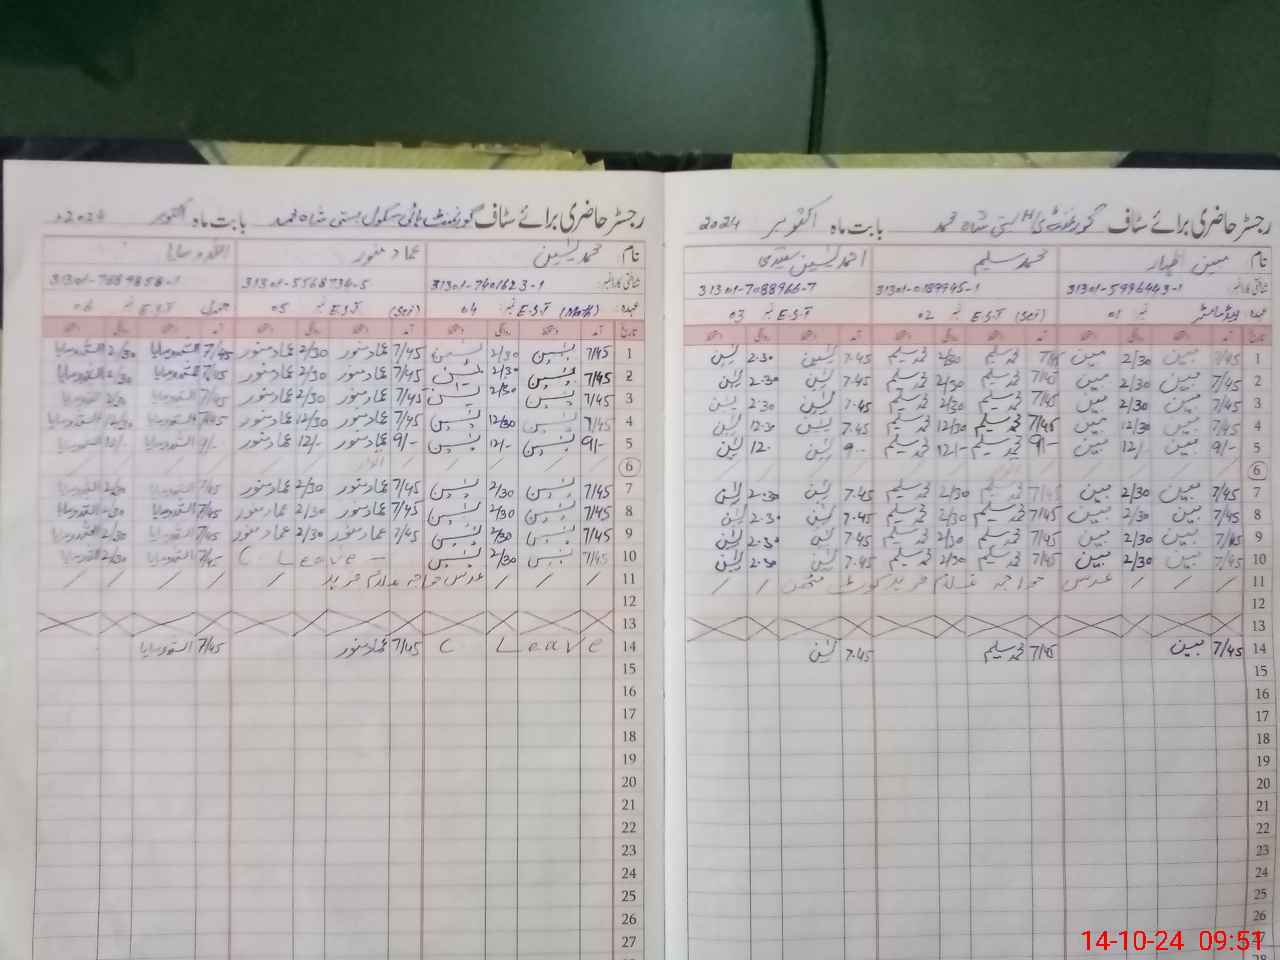 رجسٹر حاضری برائے سٹاف بستی شاہ محمد بابت ماہ اکتوبر 2024
نام مبین اظہار محمد سلیم احمد یٰسین سعیدی
شناختی کارڈ نمبر 31301-5996443-1 31301-0189945-1 31301-7088966-7
عہدہ ہیڈ ماسٹر نمبر 01 E.S.T (Sci) نمبر 02 E.S.T نمبر 03
تاریخ آمد دستخط روانگی دستخط آمد دستخط روانگی دستخط آمد دستخط روانگی دستخط
1 7/45 مبین 2/30 مبین 7/45 محمد سلیم 2/30 محمد سلیم 7.45 یٰسین 2.30 یٰسین
2 7/45 مبین 2/30 مبین 7/45 محمد سلیم 2/30 محمد سلیم 7.45 یٰسین 2.30 یٰسین
3 7/45 مبین 2/30 مبین 7/45 محمد سلیم 2/30 محمد سلیم 7.45 یٰسین 2.30 یٰسین
4 7/45 مبین 12/30 مبین 7/45 محمد سلیم 12/30 محمد سلیم 7.45 یٰسین 12.30 یٰسین
5 9/- مبین 12/- مبین 9/- محمد سلیم 12/- محمد سلیم 9 یٰسین 12 یٰسین
6
7 7/45 مبین 2/30 مبین 7/45 محمد سلیم 2/30 محمد سلیم 7.45 یٰسین 2.30 یٰسین
8 7/45 مبین 2/30 مبین 7/45 محمد سلیم 2/30 محمد سلیم 7.45 یٰسین 2.30 یٰسین
9 7/45 مبین 2/30 مبین 7/45 محمد سلیم 2/30 محمد سلیم 7.45 یٰسین 2.30 یٰسین
10 7/45 مبین 2/30 مبین 7/45 محمد سلیم 2/30 محمد سلیم 7.45 یٰسین 2.30 یٰسین
11 عرس خواجہ غلام فرید کوٹ مٹھن
12
13
14 7/45 مبین 7/45 محمد سلیم 7.45 یٰسین
15
16
17
18
19
20
21
22
23
24
25
26
27
28
رجسٹر حاضری برائے سٹاف گورنمنٹ ہائی سکول بستی شاہ محمد بابت ماہ اکتوبر 2024
نام محمد یٰسین عماد منور اللہ وسایا
شناختی کارڈ نمبر 31301-7401623-1 31301-5568734-5 31301-7889858-1
عہدہ E.S.T (Math) نمبر 04 E.S.T (Sci) نمبر 05 E.S.T نمبر 06
تاریخ آمد دستخط روانگی دستخط آمد دستخط روانگی دستخط آمد دستخط روانگی دستخط
1 7/45 یٰسین 2/30 یٰسین 7/45 عماد منور 2/30 عماد منور 7/45 اللہ وسایا 2/30 اللہ وسایا
2 7/45 یٰسین 2/30 یٰسین 7/45 عماد منور 2/30 عماد منور 7/45 اللہ وسایا 2/30 اللہ وسایا
3 7/45 یٰسین 2/30 یٰسین 7/45 عماد منور 2/30 عماد منور 7/45 اللہ وسایا 2/30 اللہ وسایا
4 7/45 یٰسین 12/30 یٰسین 7/45 عماد منور 12/30 عماد منور 7/45 اللہ وسایا 12/30 اللہ وسایا
5 9/- یٰسین 12/- یٰسین 9/- عماد منور 12/- عماد منور 9/- اللہ وسایا 12/- اللہ وسایا
6 اتوار
7 7/45 یٰسین 2/30 یٰسین 7/45 عماد منور 2/30 عماد منور 7/45 اللہ وسایا 2/30 اللہ وسایا
8 7/45 یٰسین 2/30 یٰسین 7/45 عماد منور 2/30 عماد منور 7/45 اللہ وسایا 2/30 اللہ وسایا
9 7/45 یٰسین 2/30 یٰسین 7/45 عماد منور 2/30 عماد منور 7/45 اللہ وسایا 2/30 اللہ وسایا
10 7/45 یٰسین 2/30 یٰسین C Leave 7/45 اللہ وسایا 2/30 اللہ وسایا
11 عرس خواجہ غلام فرید
12
13
14 C Leave 7/45 عماد منور 7/45 اللہ وسایا
15
16
17
18
19
20
21
22
23
24
25
26
27
14-10-24 09:51